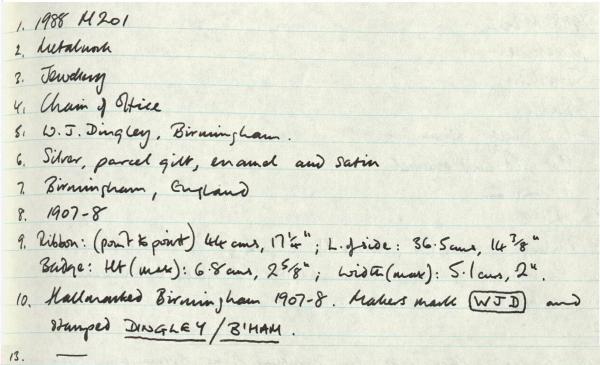 1. 1988 M201
2. Metalwork
3. Jewellery
4. Chain of Office
5. W.J. Dingley, Birmingham.
6. Silver, parcel gilt, enamel and satin
7. Birmingham, England
8. 1907-8
9. Ribbon: (point to point) 44 cms, 17 1/4"; L. of side: 36.5 cms, 14 3/8"
Badge: Ht (max): 6.8 cms, 2 5/8"; Width (max): 5.1 cms, 2".
10. Hallmarked Birmingham 1907-8. Makers mark WJD and
stamped DINGLEY / B'HAM.
13. —